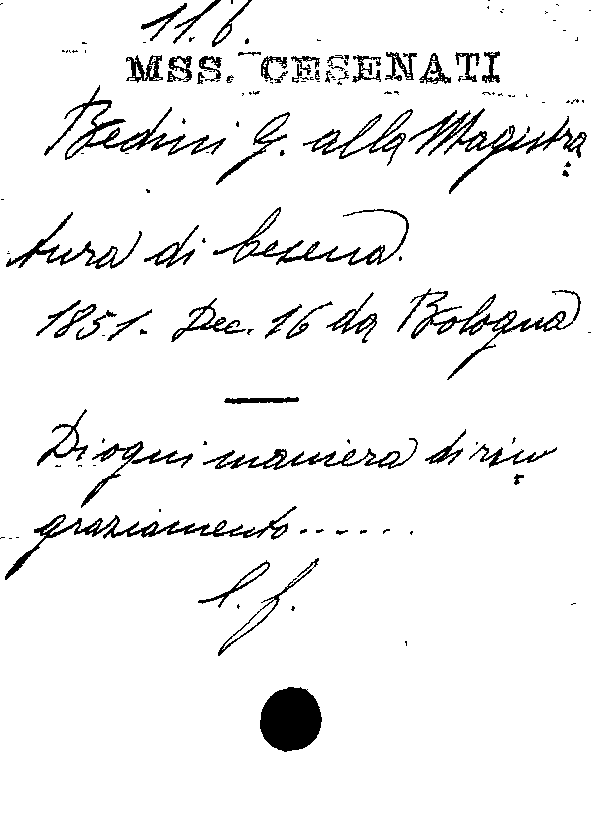 11.6.
MSS. CESENATI
Bedini G. alla Magistra:
tura di Cesena.
1851. Dec. 16 da Bologna
Di ogni maniera di rin:
graziamento......
l. f.